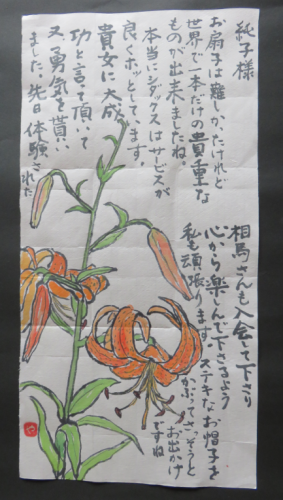 純子様
お扇子は難しかったけれど
世界で一本だけの貴重な
ものが出来ましたね。
本当にシダックスはサービスが
良くホッとしてます。
貴女に大成
功と言って頂いて
又、勇気を貰い
ました、先日体験された
相馬さんも入会して下さり
心から楽しんで下さるよう
私も頑張ります
ステキなお帽子を
かぶってさっそうと
お出かけ
ですね